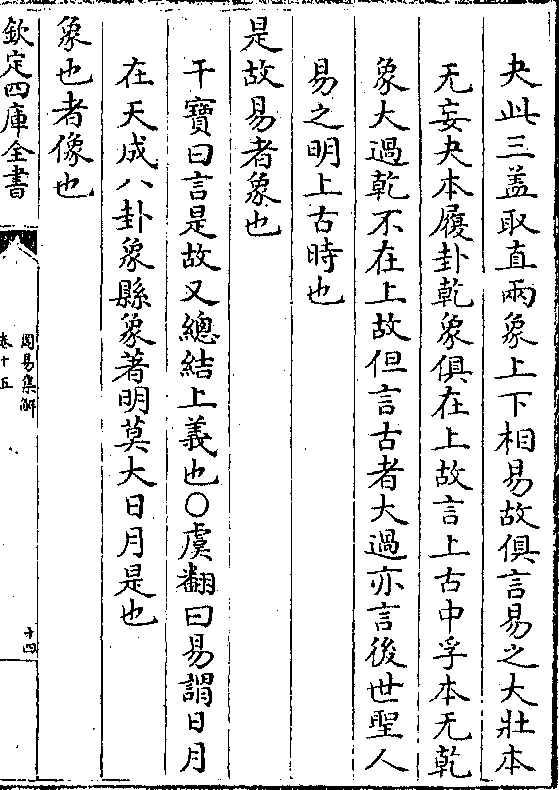 夬此三盖取直兩象上下相易故俱言易之大壯本
无妄夬本履卦乾象俱在上故言上古中孚本无乾
象大過乾不在上故但言古者大過亦言後世聖人
易之明上古時也
是故易者象也
干寶曰言是故又總結上義也○虞翻曰易謂日月
在天成八卦象縣象著明莫大日月是也
象也者像也
欽定四庫全書
周易集解
卷十五
十四